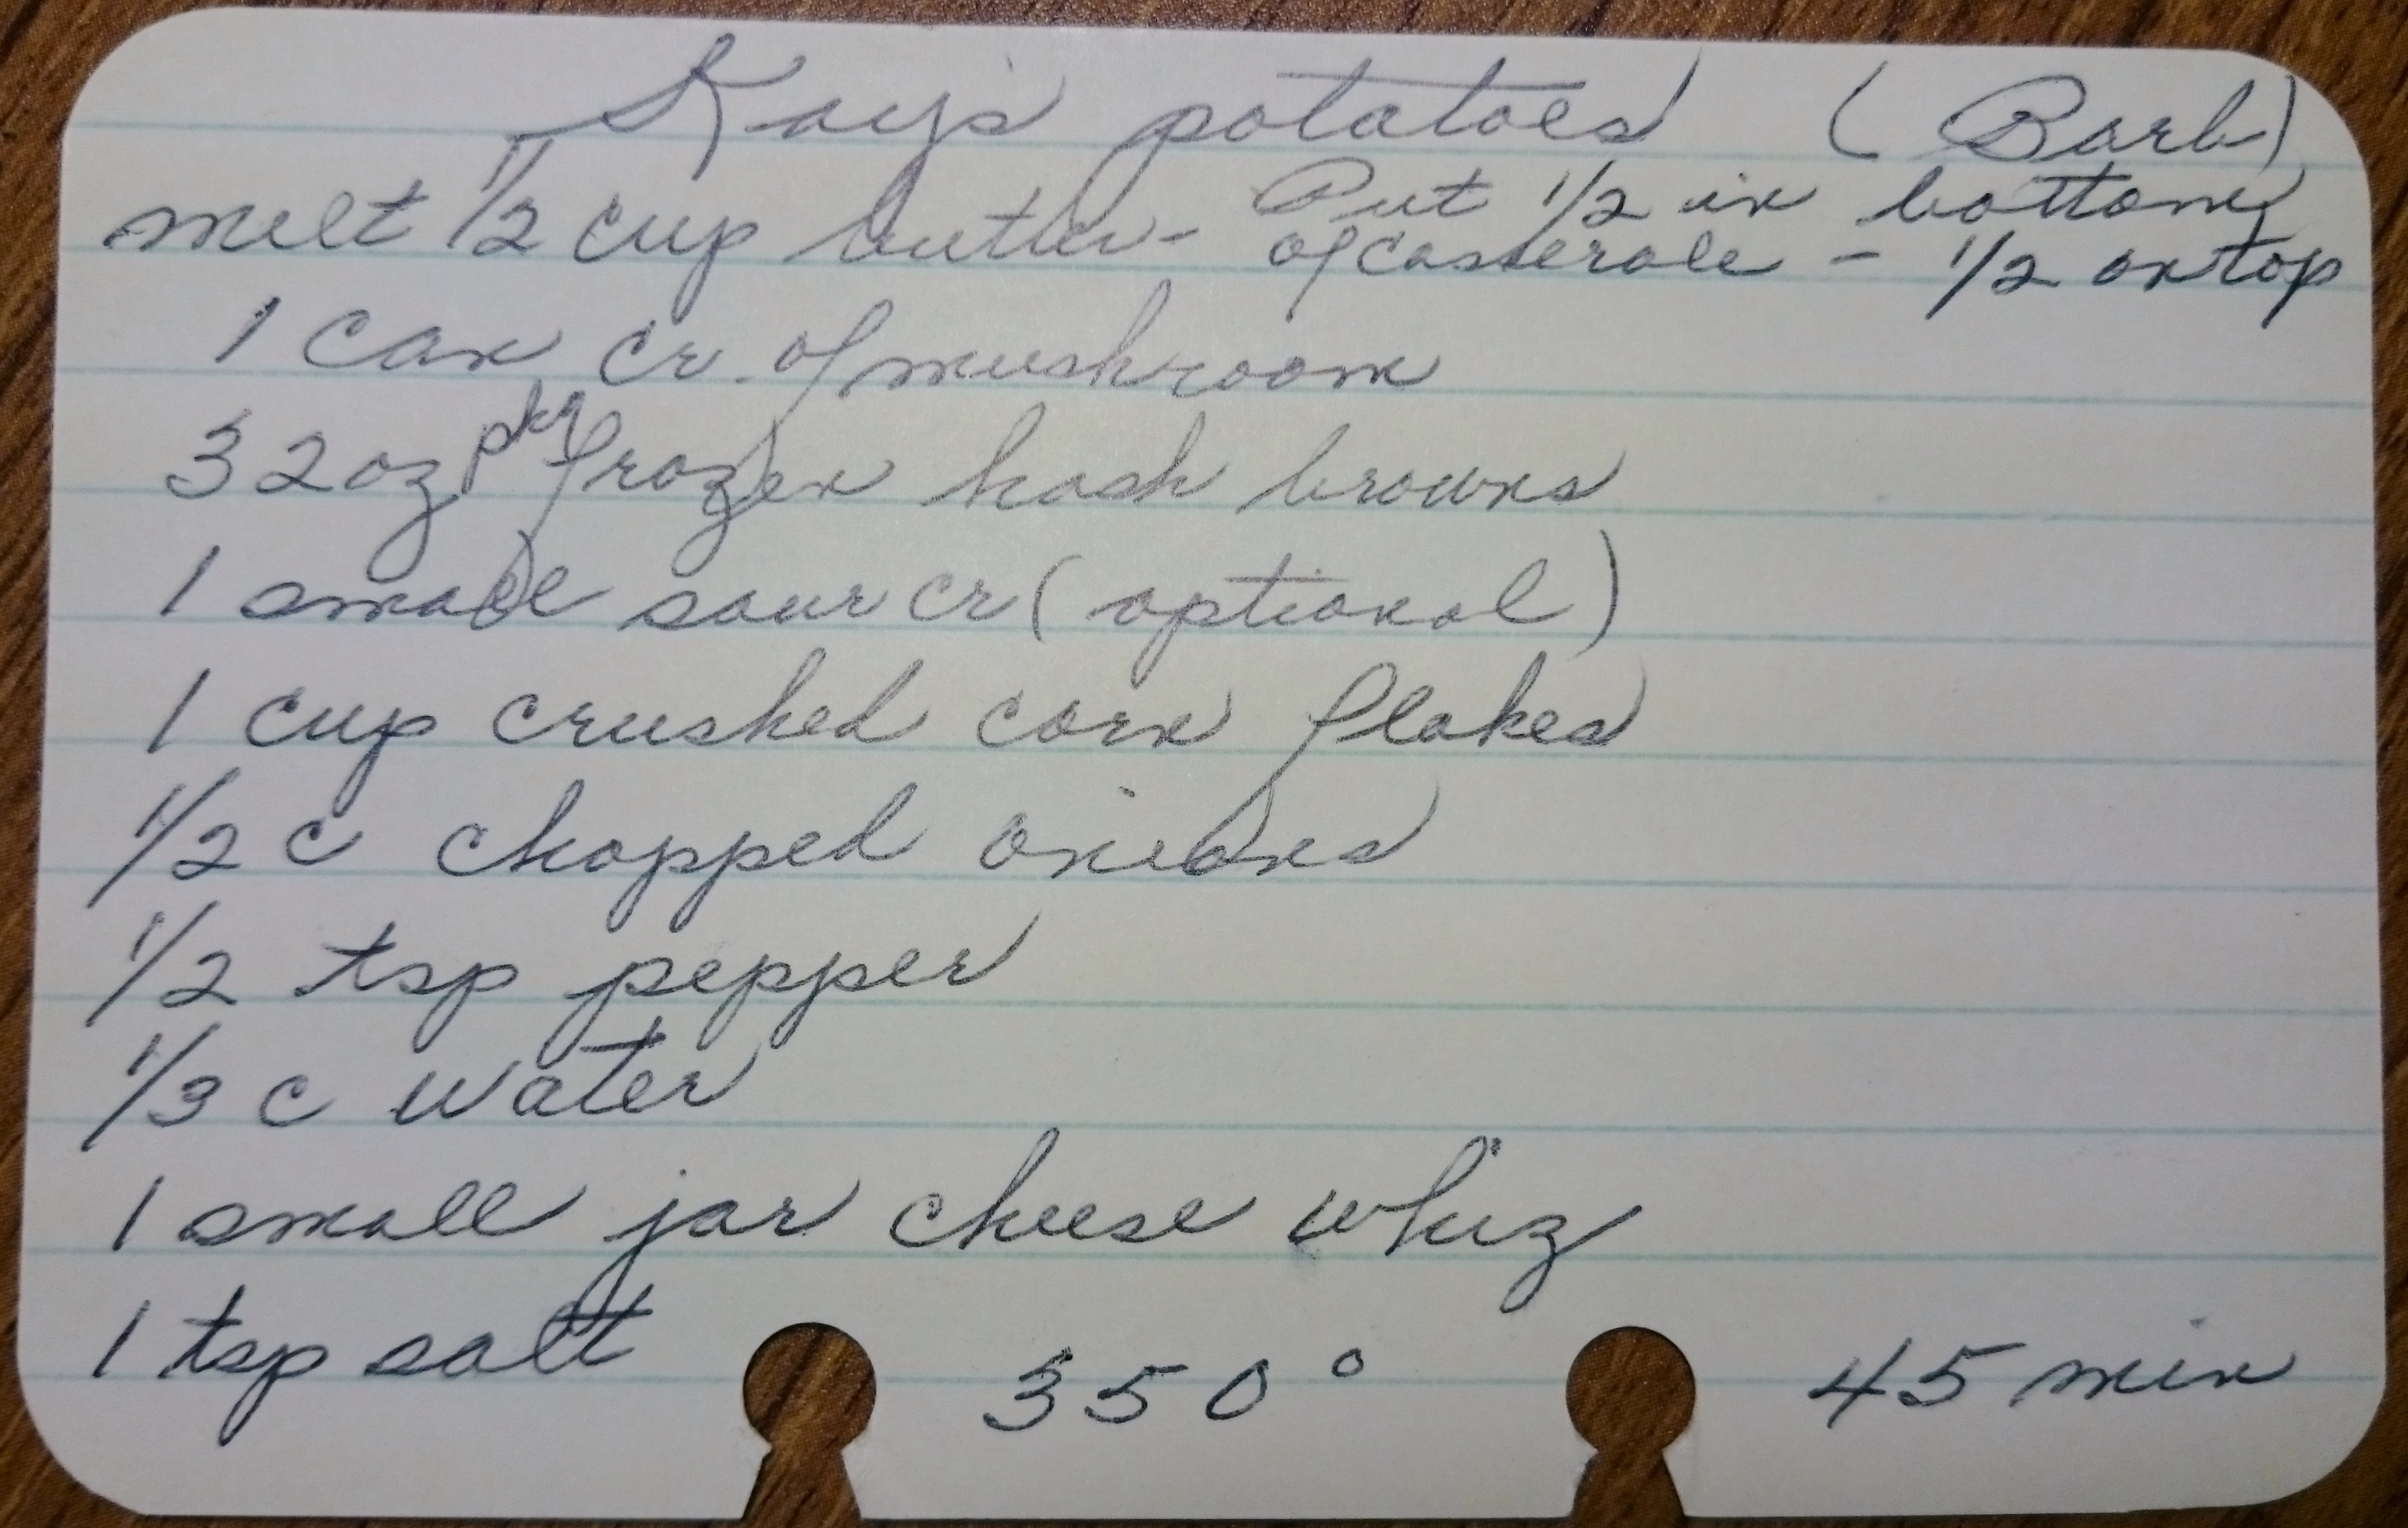 Kay's potatoes (Barb)
melt 1/2 cup butter - Put 1/2 in bottom
of casserole - 1/2 on top
1 can cr. of mushroom
32 oz pkg frozen hash browns
1 small sour cr (optional)
1 cup crushed corn flakes
1/2 c chopped onions
1/2 tsp pepper
1/3 c water
1 small jar cheese whiz
1 tsp salt 350° 45 min